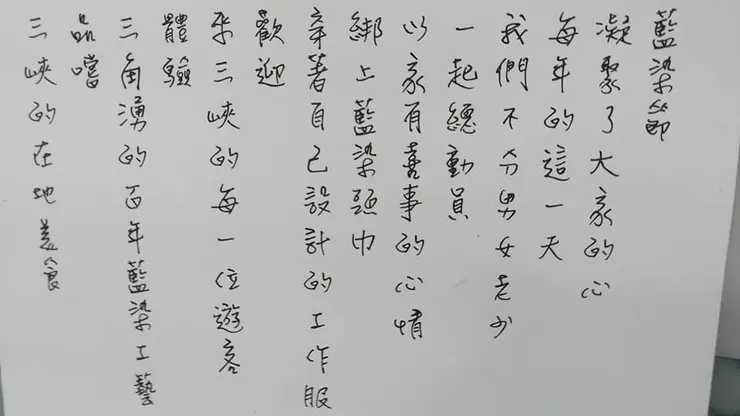 藍染節
凝聚了大家的心
每年的這一天
我們不分男女老少
一起總動員
以家有喜事的心情
綁上藍染頭巾
穿著自己設計的工作服
歡迎
來三峽的每一位遊客
體驗
三角湧的百年藍染工藝
品嚐
三峽的在地美食